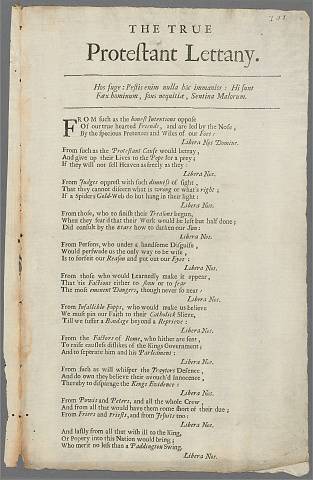 THE TRUE
Protestant Lettany.
Hos fuge: Pestis enim nulla hâc immanior: Hi sunt
Fæx hominum, fons nequitiæ, Sentina Malorum.
FROM such as the honest Intentions oppose
Of our true hearted Friends, and are led by the Nose,
By the Specious Pretences and Wiles of our Foes:
Libera Nos Domine.
From such as the Protestant Cause would betray,
And give up their Lives to the Pope for a prey;
If they will not sell Heaven as freely as they:
Libera Nos.
From Judges opprest with such dimness of sight,
That they cannot discern what is wrong or what's right;
If a Spiders Gold-Web do but hang in their light:
Libera Nos.
From those, who to finish their Treasons begun,
When they fear'd that their Work would be left but half done;
Did consult by the stars how to darken our Sun:
Libera Nos.
From Persons, who under a handsome Disguise,
Wou'd perswade us the only way to be wise,
Is to forfeit our Reason and put out our Eyes:
Libera Nos.
From those who would Learnedly make it appear,
That 'tis Factious either to shew or to fear
The most eminent Dangers, though never so near:
Libera Nos.
From Infallible Fopps, who would make us believe
We must pin our Faith to their Catholick Sleeve,
Till we suffer a Bondage beyond a Reprieve:
Libera Nos.
From the Factors of Rome, who hither are sent,
To raise causless dislikes of the Kings Government;
And to seperate him and his Parliament:
Libera Nos.
From such as will whisper the Traytors Defence,
And do own they believe their avouch'd Innocence,
Thereby to disparage the Kings Evidence:
Libera Nos.
From Powis and Peters, and all the whole Crew,
And from all that would have them come short of their due;
From Friers and Priests, and from Jesuits too:
Libera Nos.
And lastly from all that with ill to the King,
Or Popery into this Nation would bring;
Who merit no less than a Paddington Swing.
Libera Nos.